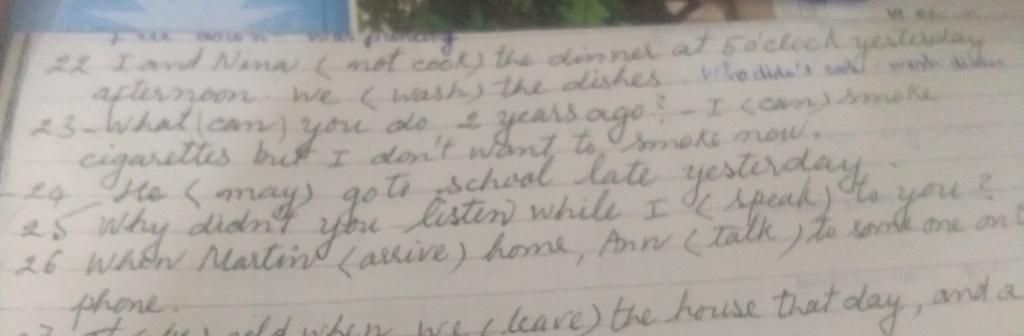 22 I and Nina ( not cook) the dinner at 5 o'clock yesterday
afternoon we ( wash) the dishes. Who didn't wash dishes
23 - What (can) you do 2 years ago? - I (can) smoke
cigarettes but I don't want to smoke now.
24 He (may) go to school late yesterday.
25 Why didn't you listen while I ( speak) to you?
26 When Martin (arrive) home, Ann ( Talk ) to some one on
phone.
cold when we (leave) the house that day, and a